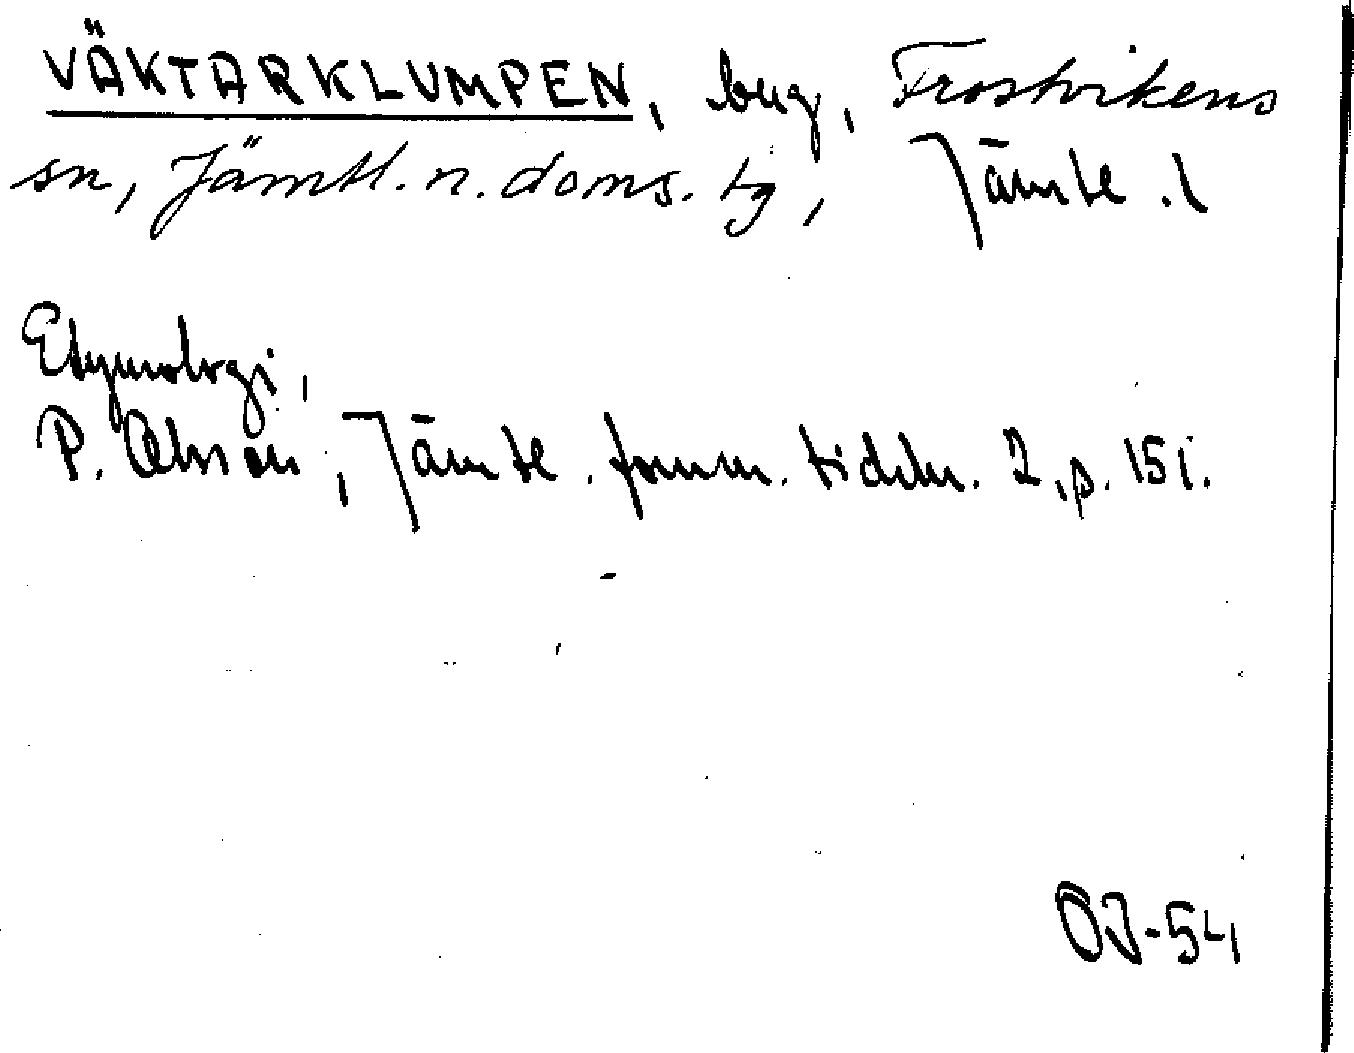 VÄKTARKLUMPEN, berg, Frostvikens
sn, Jämtl. n. doms. tg, Jämtl. l
Etymologi,
P. Olsson, Jämtl. fornm. tidskr. 2, p. 151.
OJ-54